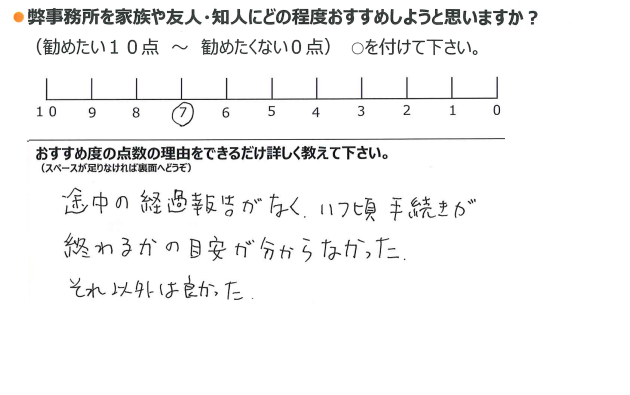 ●弊事務所を家族や友人・知人にどの程度おすすめしようと思いますか？
（勧めたい１０点　～　勧めたくない０点）　○を付けて下さい。
10 9 8 7 6 5 4 3 2 1 0
おすすめ度の点数の理由をできるだけ詳しく教えて下さい。
（スペースが足りなければ裏面へどうぞ）
途中の経過報告がなく、いつ頃手続きが
終わるかの目安が分からなかった.
それ以外は良かった.